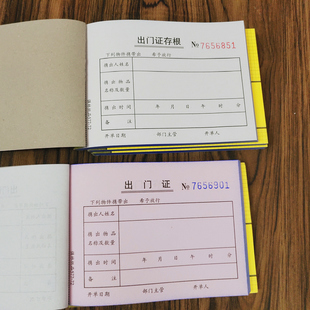 出门证存根 № 7656851
下列物件携带出 希予放行
携出人姓名
携出物品
名称及数量
携出时间 年 月 日 午 时 分
备注
开单日期 部门主管 开单人
出门证 № 7656901
下列物件携带出 希予放行
携出人姓名
携出物品
名称及数量
携出时间 年 月 日 午 时 分
备注
开单日期 部门主管 开单人